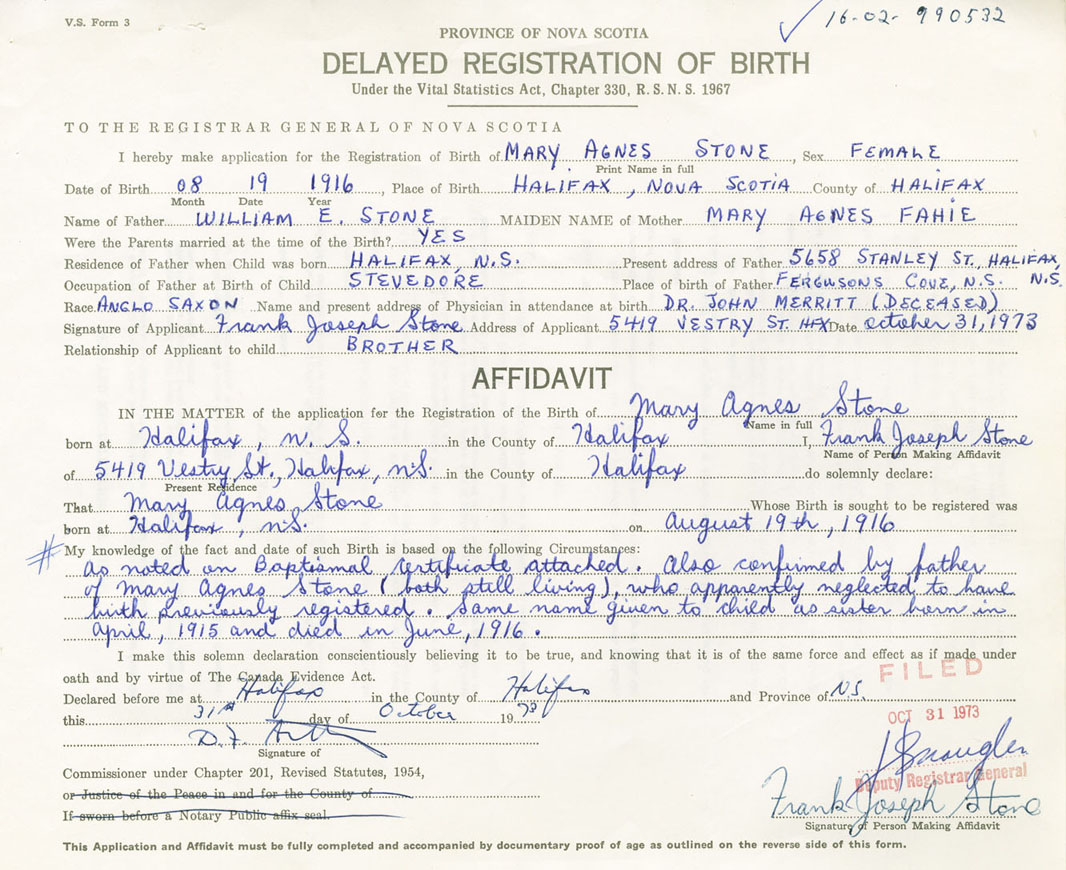 V.S. Form 3
16-02- 990532
PROVINCE OF NOVA SCOTIA
DELAYED REGISTRATION OF BIRTH
Under the Vital Statistics Act, Chapter 330, R.S.N.S. 1967
TO THE REGISTRAR GENERAL OF NOVA SCOTIA
I hereby make application for the Registration of Birth of MARY AGNES STONE, Sex FEMALE
Print Name in full
Date of Birth 08 19 1916, Place of Birth HALIFAX, NOVA SCOTIA County of HALIFAX
Month Date Year
Name of Father WILLIAM E. STONE MAIDEN NAME of Mother MARY AGNES FAHIE
Were the Parents married at the time of the Birth? YES
Residence of Father when Child was born HALIFAX, N.S. Present address of Father 5658 STANLEY ST., HALIFAX, N.S.
Occupation of Father at Birth of Child STEVEDORE Place of birth of Father FERGUSONS COVE, N.S.
Race ANGLO SAXON Name and present address of Physician in attendance at birth DR. JOHN MERRITT (DECEASED)
Signature of Applicant Frank Joseph Stone Address of Applicant 5419 VESTRY ST. HFX Date October 31, 1973
Relationship of Applicant to child BROTHER
AFFIDAVIT
IN THE MATTER of the application for the Registration of the Birth of Mary Agnes Stone
Name in full
born at Halifax, N.S. in the County of Halifax I, Frank Joseph Stone
Name of Person Making Affidavit
of 5419 Vestry St., Halifax, N.S. in the County of Halifax do solemnly declare:
Present Residence
That Mary Agnes Stone Whose Birth is sought to be registered was
born at Halifax, N.S. on August 19th, 1916
# My knowledge of the fact and date of such Birth is based on the following Circumstances:
As noted on Baptismal Certificate attached. Also confirmed by father
of Mary Agnes Stone (both still living), who apparently neglected to have
birth previously registered. Same name given to child as sister born in
April, 1915 and died in June, 1916.
I make this solemn declaration conscientiously believing it to be true, and knowing that it is of the same force and effect as if made under
oath and by virtue of The Canada Evidence Act.
FILED
Declared before me at Halifax in the County of Halifax and Province of N.S.
this 31st day of October 1973
OCT 31 1973
D.F.
Signature of
Commissioner under Chapter 201, Revised Statutes, 1954,
Deputy Registrar General
or Justice of the Peace in and for the County of
Frank Joseph Stone
If sworn before a Notary Public affix seal.
Signature of Person Making Affidavit
This Application and Affidavit must be fully completed and accompanied by documentary proof of age as outlined on the reverse side of this form.